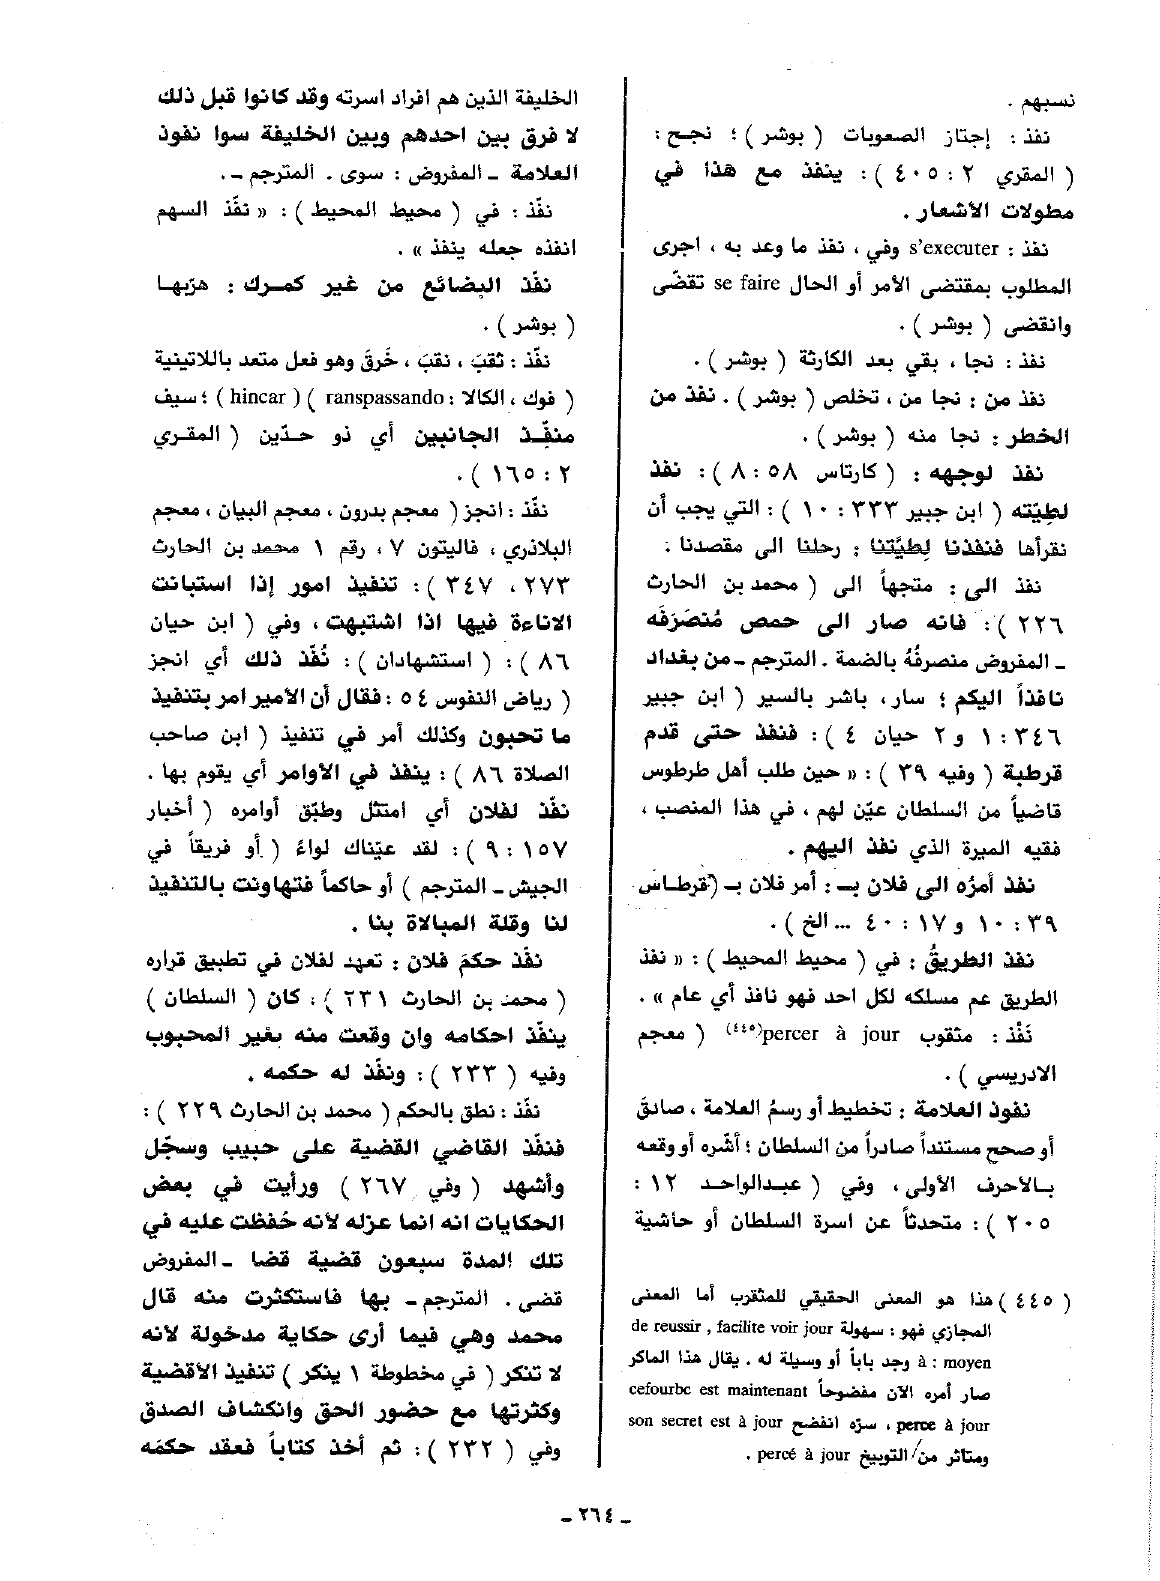 نسبهم .
نفذ : إجتاز الصعوبات ( بوشر ) ؛ نجح :
( المقري ٢ : ٤٠٥ ) : ينفذ مع هذا في
مطولات الأشعار .
نفذ : s'executer وفي ، نفذ ما وعد به ، اجرى
المطلوب بمقتضى الأمر أو الحال se faire تقضّى
وانقضى ( بوشر ) .
نفذ : نجا ، بقي بعد الكارثة ( بوشر ) .
نفذ من : نجا من ، تخلص ( بوشر ) . نفذ من
الخطر : نجا منه ( بوشر ) .
نفذ لوجهه : ( كارتاس ٥٨ : ٨ ) : نفذ
لطِيّته ( ابن جبير ٣٣٣ : ١٠ ) : التي يجب أن
نقرأها فنفذنا لِطيَّتنا : رحلنا الى مقصدنا .
نفذ الى : متجهاً الى ( محمد بن الحارث
٢٢٦ ) : فانه صار الى حمص مُنصَرَفَه
ـ المفروض منصرفُهُ بالضمة . المترجم ـ من بغداد
نافذاً اليكم ؛ سار ، باشر بالسير ( ابن جبير
٣٤٦ : ١ و ٢ حيان ٤ ) : فنفذ حتى قدم
قرطبة ( وفيه ٣٩ ) : « حين طلب أهل طرطوس
قاضياً من السلطان عيّن لهم ، في هذا المنصب ،
فقيه الميرة الذي نفذ اليهم .
نفذ أمرُه الى فلان بـ : أمر فلان بـ (قرطاس
٣٩ : ١٠ و ١٧ : ٤٠ ... الخ ) .
نفذ الطريقُ : في ( محيط المحيط ) : « نفذ
الطريق عم مسلكه لكل احد فهو نافذ أي عام » .
نَفْذ : مثقوب percer à jour(٤٤٥) ( معجم
الادريسي ) .
نفوذ العلامة : تخطيط أو رسمُ العلامة ، صادق
أو صحح مستنداً صادراً من السلطان ؛ أشّره أو وقعه
بالاحرف الأولى ، وفي ( عبدالواحد ١٢ :
٢٠٥ ) : متحدثاً عن اسرة السلطان أو حاشية
( ٤٤٥ ) هذا هو المعنى الحقيقي للمثقرب أما المعنى
المجازي فهو : سهولة de reussir , facilite voir jour
à : moyen وجد باباً أو وسيلة له . يقال هذا الماكر
صار أمره الآن مفضوحاً cefourbc est maintenant
perce à jour ، سرّه انفضح son secret est à jour
ومتاثر من/التوبيخ percé à jour .
الخليفة الذين هم افراد اسرته وقد كانوا قبل ذلك
لا فرق بين احدهم وبين الخليفة سوا نفوذ
العلامة ـ المفروض : سوى . المترجم ـ .
نفّذ : في ( محيط المحيط ) : « نفّذ السهم
انفذه جعله ينفذ » .
نفّذ البضائع من غير كمرك : هرّبها
( بوشر ) .
نفّذ : ثقبَ ، نقبَ ، خَرقَ وهو فعل متعد باللاتينية
( فوك ، الكالا : ranspassando ) ( hincar ) ؛ سيف
منفّذ الجانبين أي ذو حدّين ( المقري
٢ : ١٦٥ ) .
نفّذ : انجز ( معجم بدرون ، معجم البيان ، معجم
البلاذري ، فاليتون ٧ ، رقم ١ محمد بن الحارث
٢٧٣ ، ٣٤٧ ) : تنفيذ امور إذا استبانت
الاناءة فيها اذا اشتبهت ، وفي ( ابن حيان
٨٦ ) : ( استشهادان ) : نُفّذ ذلك أي انجز
( رياض النفوس ٥٤ : فقال أن الأمير امر بتنفيذ
ما تحبون وكذلك أمر في تنفيذ ( ابن صاحب
الصلاة ٨٦ ) : ينفذ في الأوامر أي يقوم بها .
نفّذ لفلان أي امتثل وطبّق أوامره ( أخبار
١٥٧ : ٩ ) : لقد عيّناك لواءً ( أو فريقاً في
الجيش ـ المترجم ) أو حاكماً فتهاونت بالتنفيذ
لنا وقلة المبالاة بنا .
نفّذ حكمَ فلان : تعهد لفلان في تطبيق قراره
( محمد بن الحارث ٢٣١ ) : كان ( السلطان )
ينفّذ احكامه وان وقعت منه بغير المحبوب
وفيه ( ٢٣٣ ) : ونفّذ له حكمه .
نفّذ : نطق بالحكم ( محمد بن الحارث ٢٢٩ ) :
فنفّذ القاضي القضية على حبيب وسجّل
وأشهد ( وفي ٢٦٧ ) ورأيت في بعض
الحكايات انه انما عزله لأنه حُفظت عليه في
تلك المدة سبعون قضية قضا ـ المفروض
قضى . المترجم ـ بها فاستكثرت منه قال
محمد وهي فيما أرى حكاية مدخولة لأنه
لا تنكر ( في مخطوطة ١ ينكر ) تنفيذ الأقضية
وكثرتها مع حضور الحق وانكشاف الصدق
وفي ( ٢٣٢ ) : ثم أخذ كتاباً فعقد حكمَه
ـ ٢٦٤ ـ